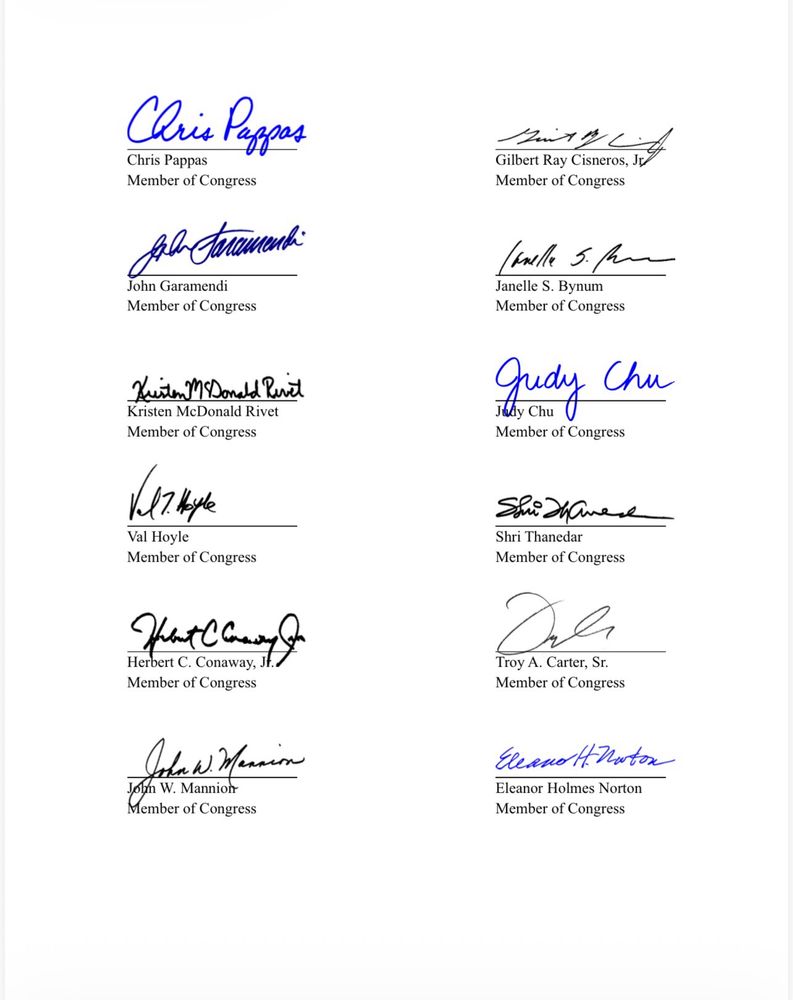 Chris Pappas
Chris Pappas
Member of Congress
Gilbert Ray Cisneros, Jr.
Member of Congress
John Garamendi
John Garamendi
Member of Congress
Janelle S.
Janelle S. Bynum
Member of Congress
Kristen McDonald Rivet
Kristen McDonald Rivet
Member of Congress
Judy Chu
Judy Chu
Member of Congress
Val T. Hoyle
Val Hoyle
Member of Congress
Shri Thanedar
Shri Thanedar
Member of Congress
Herbert C Conaway Jr
Herbert C. Conaway, Jr.
Member of Congress
Troy A. Carter, Sr.
Member of Congress
John W. Mannion
John W. Mannion
Member of Congress
Eleanor H. Norton
Eleanor Holmes Norton
Member of Congress